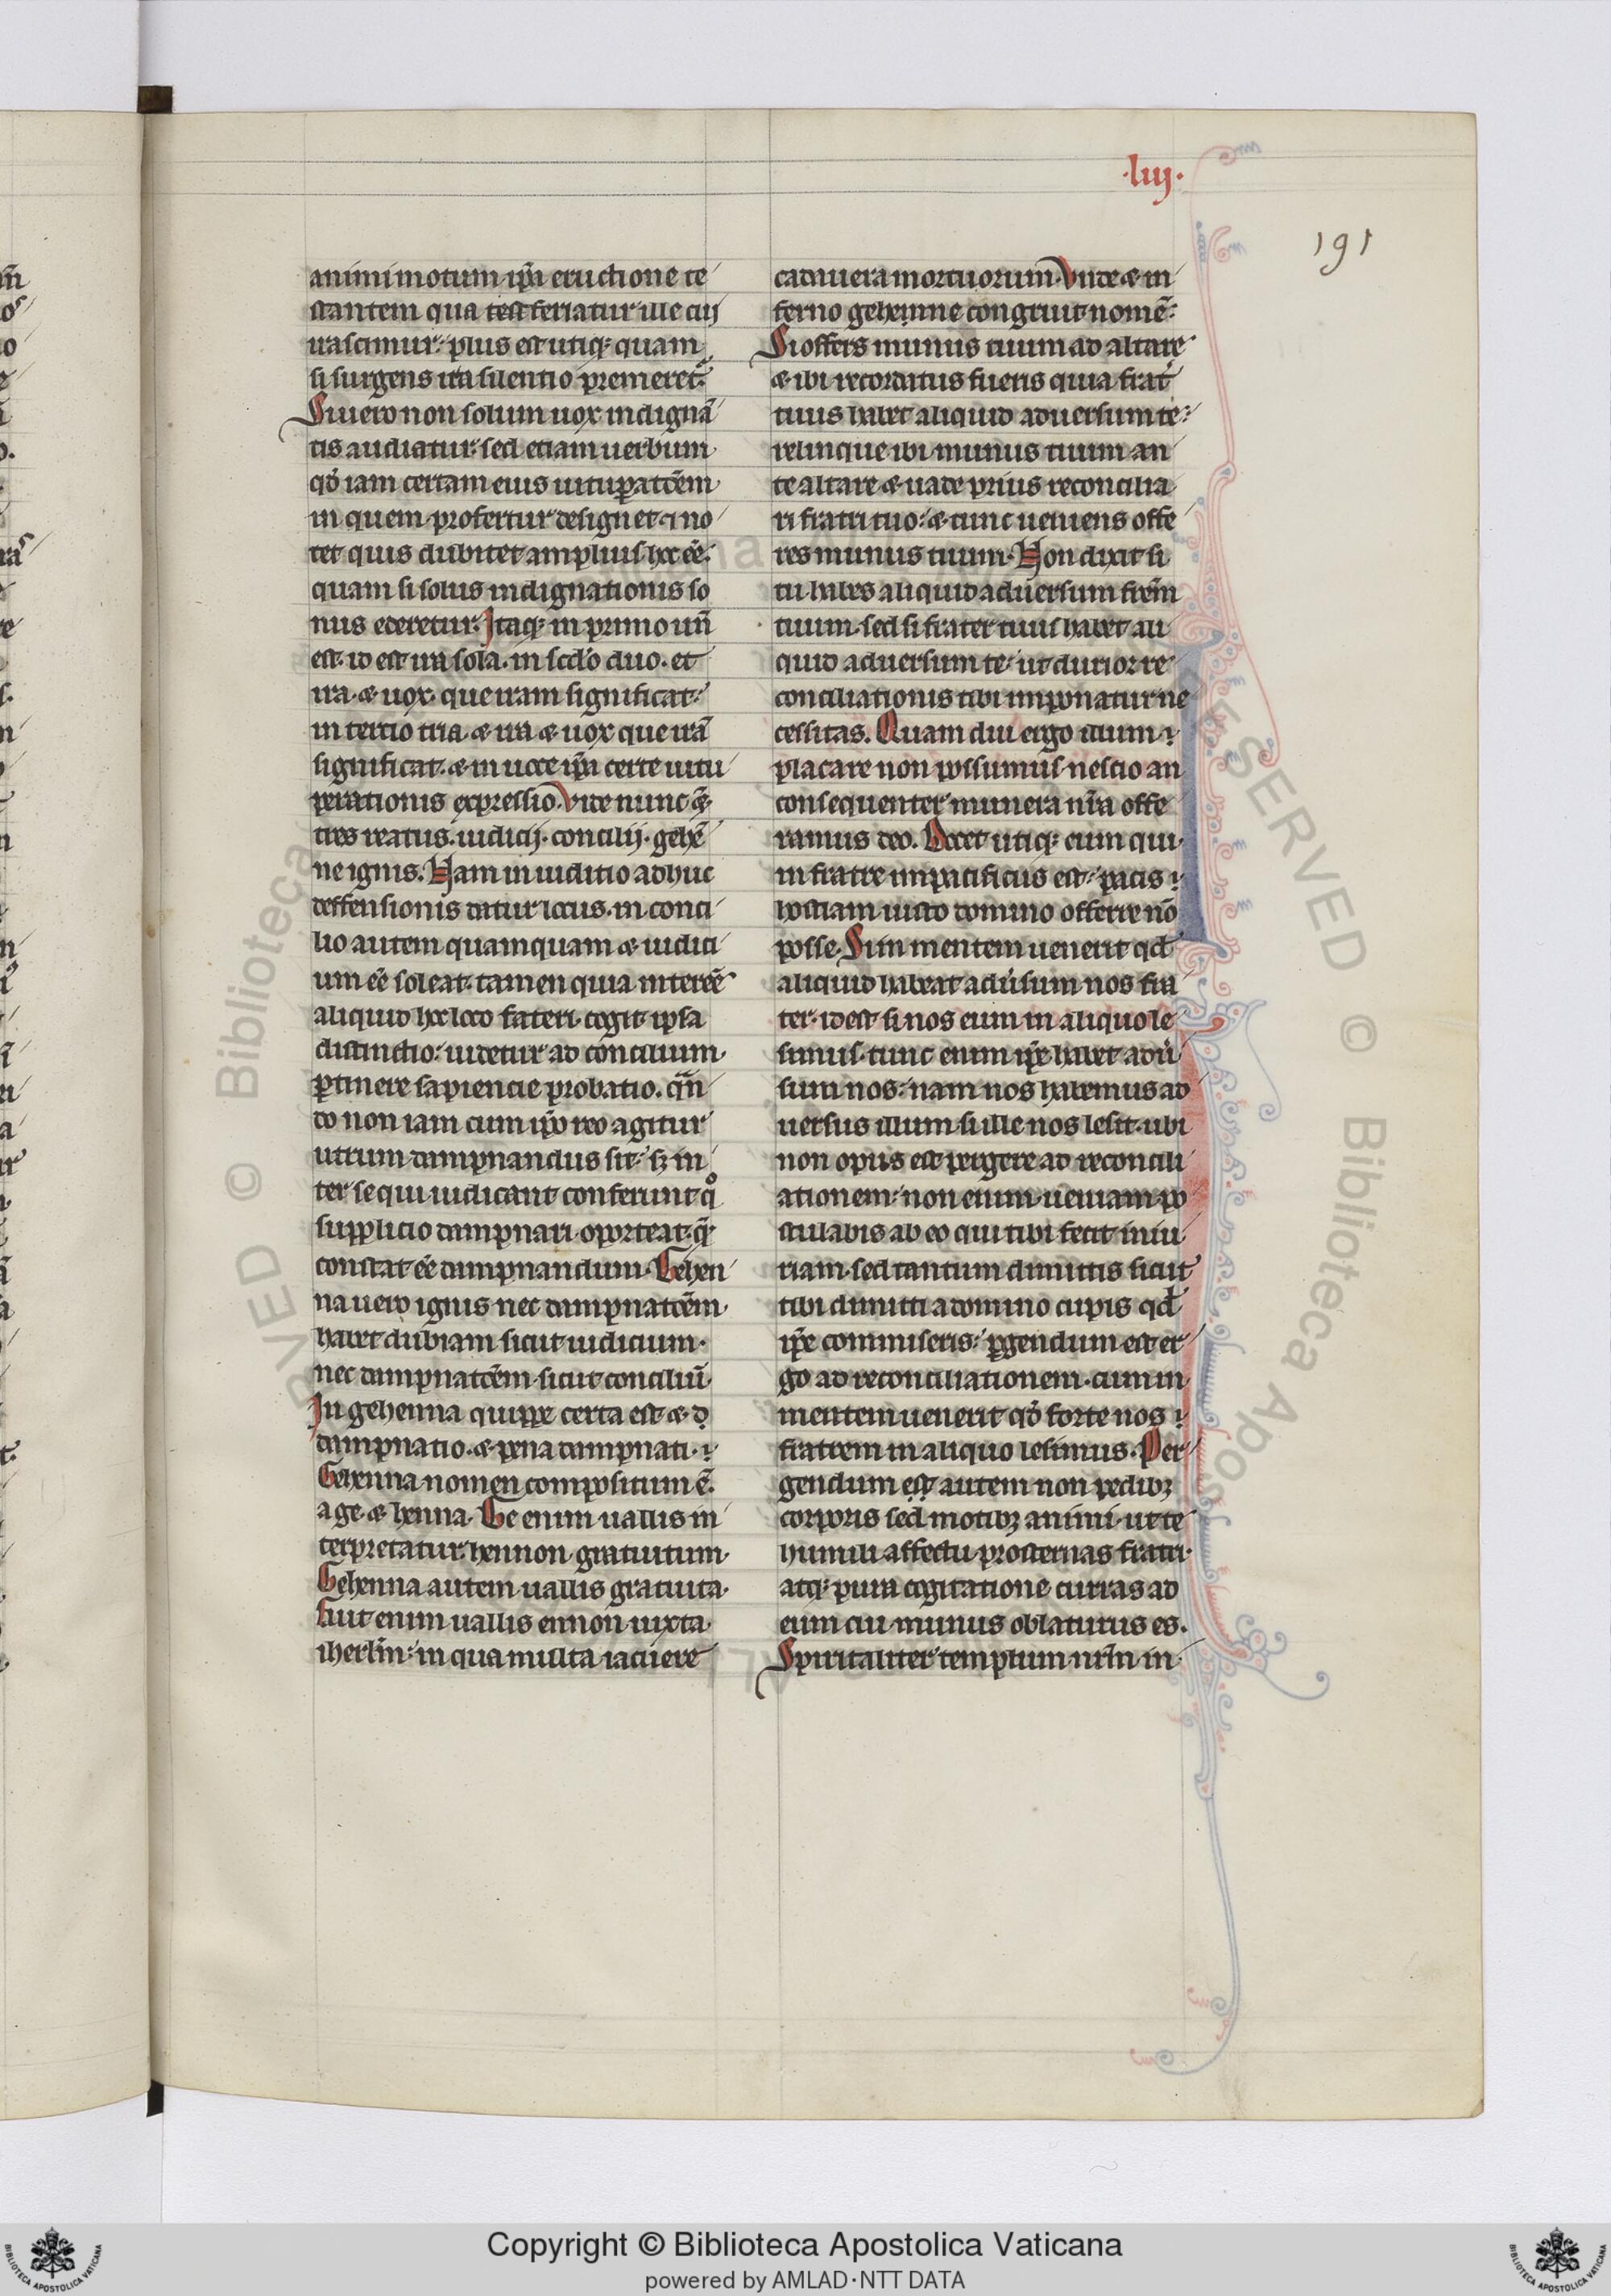 ·liij·
191
animi motum ip̄a eructione te
stantem qua test feriatur ille cij
irascimur: plus est utiq; quam
si surgens ira silentio p̄meret᷑.
Si uero non solum uox indignā
tis audiatur· sed etiam uerbum
qd̓ iam certam eius uitup̄atōem
in quem profertur designet ⁊ no
tet quis dubitet amplius hoc eē·
quam si solus indignationis so
nus ederetur. Itaq; in primo un̄
est· id est ira sola· in scd̓o duo· et
ira· & uox· que iram significat:
in tertio tria· & ira & uox que irā
significat· & in uoce ip̄a certe uitu
perationis expressio. Vide nunc &
tres reatus· iudicij· concilij· gehē
ne ignis. Nam in iuditio adhuc
deffensionis datur locus· in conci
lio autem quamquam & iudici
um eē soleat· tamen quia interēē
aliquid hoc loco fateri cogit ipsa
distinctio: uidetur ad concilium
p̱tinere sapiencie probatio. qn̄
do non iam cum ip̄o reo agitur
utrum dampnandus sit: sꝫ in
ter se qui iudicant conferunt q̊
supplicio dampnari oporteat· q̄
constat eē dampnandum· Gehen
na uero ignis nec dampnatōem
habet dubiam sicut iudicium·
nec dampnatōem· sicut conciliū
In gehenna quippe certa est &
dampnatio· & pena dampnati·
Gehenna nomen compositum ē·
a ge· & henna· Ge enim uallis in
terpretatur. hennon gratuitum·
Gehenna autem uallis gratuita·
fuit enim uallis ennon iuxta
iherlm̄: in qua multa iacuere
cadauera mortuorum· Vnde & in
ferno gehenne congruit nomē·
Si offers munus tuum ad altare
& ibi recordatus fueris quia frat᷑
tuus habet aliquid aduersum te:
relinque ibi munus tuum an
te altare & uade prius reconcilia
ri fratri tuo: & tunc ueniens offe
res munus tuum· Non dixit si
tu habes aliquid aduersum fr̄em
tuum· sed si frater tuus habet ali
quid aduersum te· ut durior re
conciliationis tibi imponatur ne
cessitas. Quam diu ergo illum
placare non possumus nescio an
consequenter munera nr̄a offe
ramus deo. Docet utiq; eum qui
in fratre impacificus est: pacis
hostiam iusto domino offerre nō
posse. Si in mentem uenerit qd̄
aliquid habeat adūsum nos fra
ter· id est si nos eum in aliquo le
simus· tunc enim ip̄e habet adū
sum nos: nam nos habemus ad
uersus illum si ille nos lesit· ubi
non opus est pergere ad reconcili
ationem: non enim ueniam po
stulabis ab eo qui tibi fecit iniu
riam· sed tantum dimittis sicut
tibi dimitti a domino cupis qd̄
ip̄e commiseris: p̱gendum est er
go ad reconciliationem· cum in
mentem uenerit qd̓ forte nos
fratrem in aliquo lesimus. Per
gendum est autem non pedibꝫ
corporis sed motibꝫ animi· ut te
humili affectu prosternas fratri
atq; pura cogitatione curras ad
eum cui munus oblaturus es.
Spiritaliter templum nr̄m in
© Biblioteca Apostolica Vaticana
Copyright © Biblioteca Apostolica Vaticana
powered by AMLAD·NTT DATA